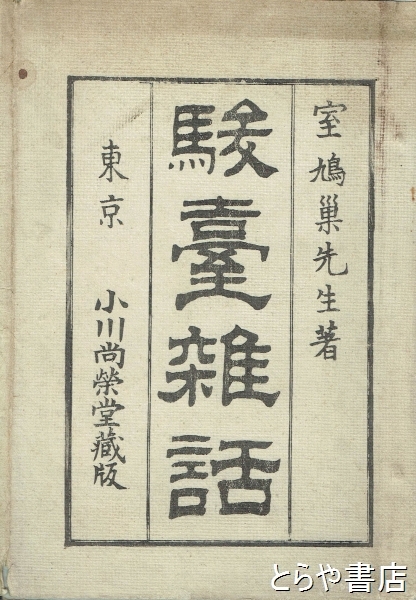 室鳩巣先生著
駿臺雜話
東京 小川尚榮堂藏版
とらや書店